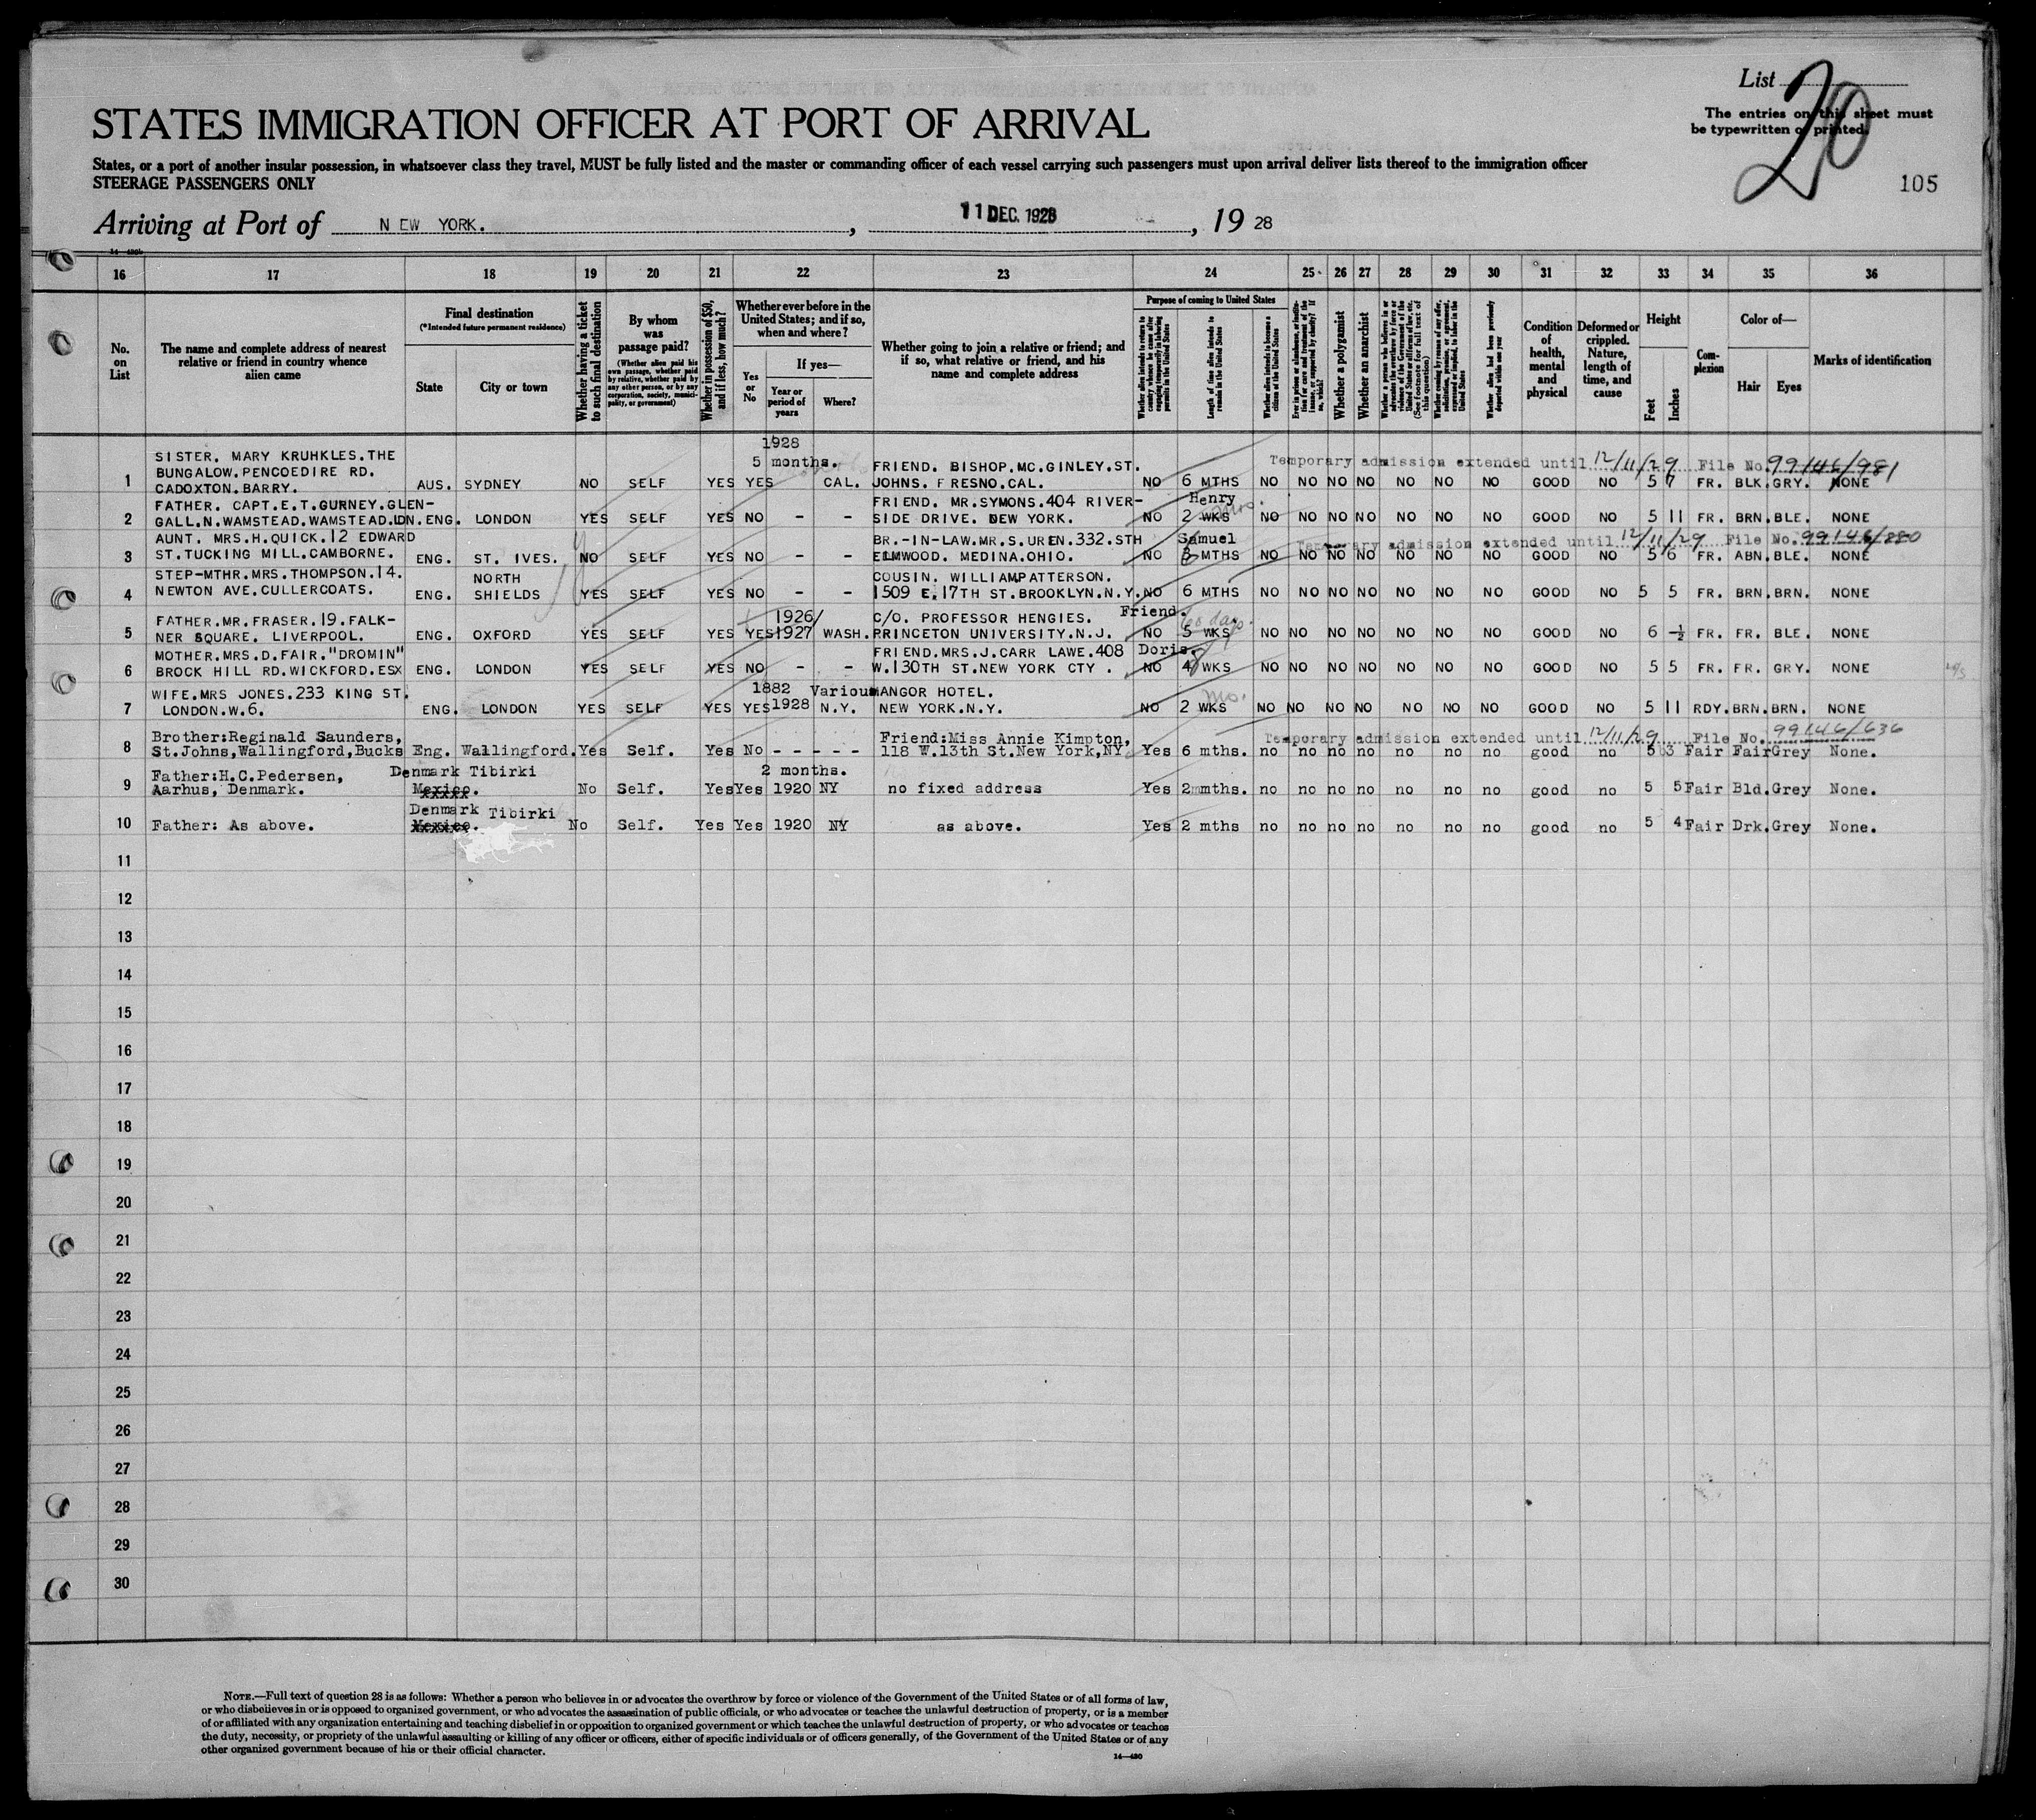 List 20
The entries on this sheet must
be typewritten or printed.
STATES IMMIGRATION OFFICER AT PORT OF ARRIVAL
States, or a port of another insular possession, in whatsoever class they travel, MUST be fully listed and the master or commanding officer of each vessel carrying such passengers must upon arrival deliver lists thereof to the immigration officer
STEERAGE PASSENGERS ONLY
105
Arriving at Port of NEW YORK. , 11 DEC. 1928 , 19 28
16 17 18 19 20 21 22 23 24 25 26 27 28 29 30 31 32 33 34 35 36
No. on List
The name and complete address of nearest relative or friend in country whence alien came
Final destination
(*Intended future permanent residence)
State
City or town
Whether having a ticket to such final destination
By whom was passage paid?
(Whether alien paid his own passage, whether paid by relative, whether paid by any other person, or by any corporation, society, municipality, or government)
Whether in possession of $50, and if less, how much?
Whether ever before in the United States; and if so, when and where?
Yes or No
If yes—
Year or period of years
Where?
Whether going to join a relative or friend; and if so, what relative or friend, and his name and complete address
Purpose of coming to United States
Whether alien intends to return to country whence he came after engaging temporarily in laboring pursuits in the United States
Length of time alien intends to remain in the United States
Whether alien intends to become a citizen of the United States
Ever in prison or almshouse, or institution for care and treatment of the insane, or supported by charity? If so, which?
Whether a polygamist
Whether an anarchist
Whether a person who believes in or advocates the overthrow by force or violence of the Government of the United States or all forms of law, etc. (See footnote for full text of this question)
Whether coming by reason of any offer, solicitation, promise, or agreement, expressed or implied, to labor in the United States
Whether alien had been previously deported within one year
Condition of health, mental and physical
Deformed or crippled. Nature, length of time, and cause
Height
Feet
Inches
Complexion
Color of—
Hair
Eyes
Marks of identification
1928
5 months.
Temporary admission extended until 12/11/29 File No. 99146/981
1 SISTER. MARY KRUHKLES. THE BUNGALOW. PENCOEDIRE RD. CADOXTON. BARRY. AUS. SYDNEY NO SELF YES YES CAL. FRIEND. BISHOP. MC. GINLEY. ST. JOHNS. FRESNO. CAL. NO 6 MTHS NO NO NO NO NO NO NO GOOD NO 5 7 FR. BLK. GRY. NONE
2 FATHER. CAPT. E. T. GURNEY. GLEN-GALL. N. WAMSTEAD. WAMSTEAD. LDN. ENG. LONDON YES SELF YES NO - - FRIEND. MR. SYMONS. 404 RIVER-SIDE DRIVE. NEW YORK. Henry NO 2 WKS NO NO NO NO NO NO NO GOOD NO 5 11 FR. BRN. BLE. NONE
Temporary admission extended until 12/11/29 File No. 99146/880
3 AUNT. MRS. H. QUICK. 12 EDWARD ST. TUCKING MILL. CAMBORNE. ENG. ST. IVES. NO SELF YES NO - - BR.-IN-LAW. MR. S. UREN. 332. STH ELMWOOD. MEDINA. OHIO. Samuel NO 6 MTHS NO NO NO NO NO NO NO GOOD NO 5 6 FR. ABN. BLE. NONE
4 STEP-MTHR. MRS. THOMPSON. 14. NEWTON AVE. CULLERCOATS. ENG. NORTH SHIELDS YES SELF YES NO - - COUSIN. WILLIAM PATTERSON. 1509 E. 17TH ST. BROOKLYN. N.Y. NO 6 MTHS NO NO NO NO NO NO NO GOOD NO 5 5 FR. BRN. BRN. NONE
5 FATHER. MR. FRASER. 19. FALK-NER SQUARE. LIVERPOOL. ENG. OXFORD YES SELF YES YES 1926/1927 WASH. C/O. PROFESSOR HENGIES. PRINCETON UNIVERSITY. N.J. Friend. 60 days. NO 5 WKS NO NO NO NO NO NO NO GOOD NO 6 -½ FR. FR. BLE. NONE
6 MOTHER. MRS. D. FAIR. "DROMIN" BROCK HILL RD. WICKFORD. ESX ENG. LONDON YES SELF YES NO - - FRIEND. MRS. J. CARR LAWE. 408 W. 130TH ST. NEW YORK CTY. Doris. NO 4 WKS NO NO NO NO NO NO NO GOOD NO 5 5 FR. FR. GRY. NONE
7 WIFE. MRS JONES. 233 KING ST. LONDON. W.6. ENG. LONDON YES SELF YES YES 1882 1928 Various N.Y. MANGOR HOTEL. NEW YORK. N.Y. mo. NO 2 WKS NO NO NO NO NO NO NO GOOD NO 5 11 RDY. BRN. BRN. NONE
Temporary admission extended until 12/11/29 File No. 99146/636
8 Brother: Reginald Saunders, St. Johns, Wallingford, Bucks Eng. Wallingford. Yes Self. Yes No - - - - - Friend: Miss Annie Kimpton, 118 W. 13th St. New York, NY. Yes 6 mths. no no no no no no no good no 5 3 Fair Fair Grey None.
9 Father: H.C. Pedersen, Aarhus, Denmark. Denmark Tibirki Mexico. No Self. Yes Yes 2 months. 1920 NY no fixed address Yes 2 mths. no no no no no no no good no 5 5 Fair Bld. Grey None.
10 Father: As above. Denmark Tibirki Mexico. No Self. Yes Yes 1920 NY as above. Yes 2 mths no no no no no no no good no 5 4 Fair Drk. Grey None.
11
12
13
14
15
16
17
18
19
20
21
22
23
24
25
26
27
28
29
30
NOTE.—Full text of question 28 is as follows: Whether a person who believes in or advocates the overthrow by force or violence of the Government of the United States or of all forms of law,
or who disbelieves in or is opposed to organized government, or who advocates the assassination of public officials, or who advocates or teaches the unlawful destruction of property, or is a member
of or affiliated with any organization entertaining and teaching disbelief in or opposition to organized government or which teaches the unlawful destruction of property, or who advocates or teaches
the duty, necessity, or propriety of the unlawful assaulting or killing of any officer or officers, either of specific individuals or of officers generally, of the Government of the United States or of any
other organized government because of his or their official character.
14—430